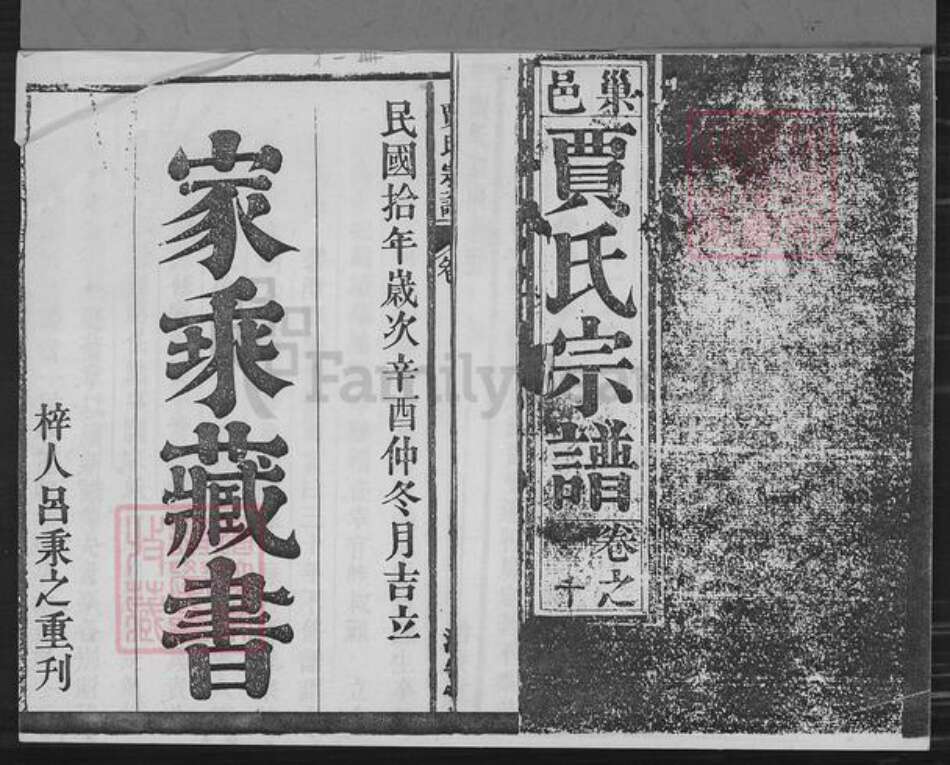 巢邑
賈氏宗譜
卷之十
民國拾年歲次辛酉仲冬月吉立
家乘藏書
梓人呂秉之重刊